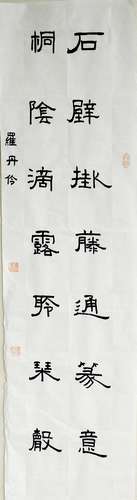 石壁掛藤通篆意
桐陰滴露聆琴聲
羅丹伶